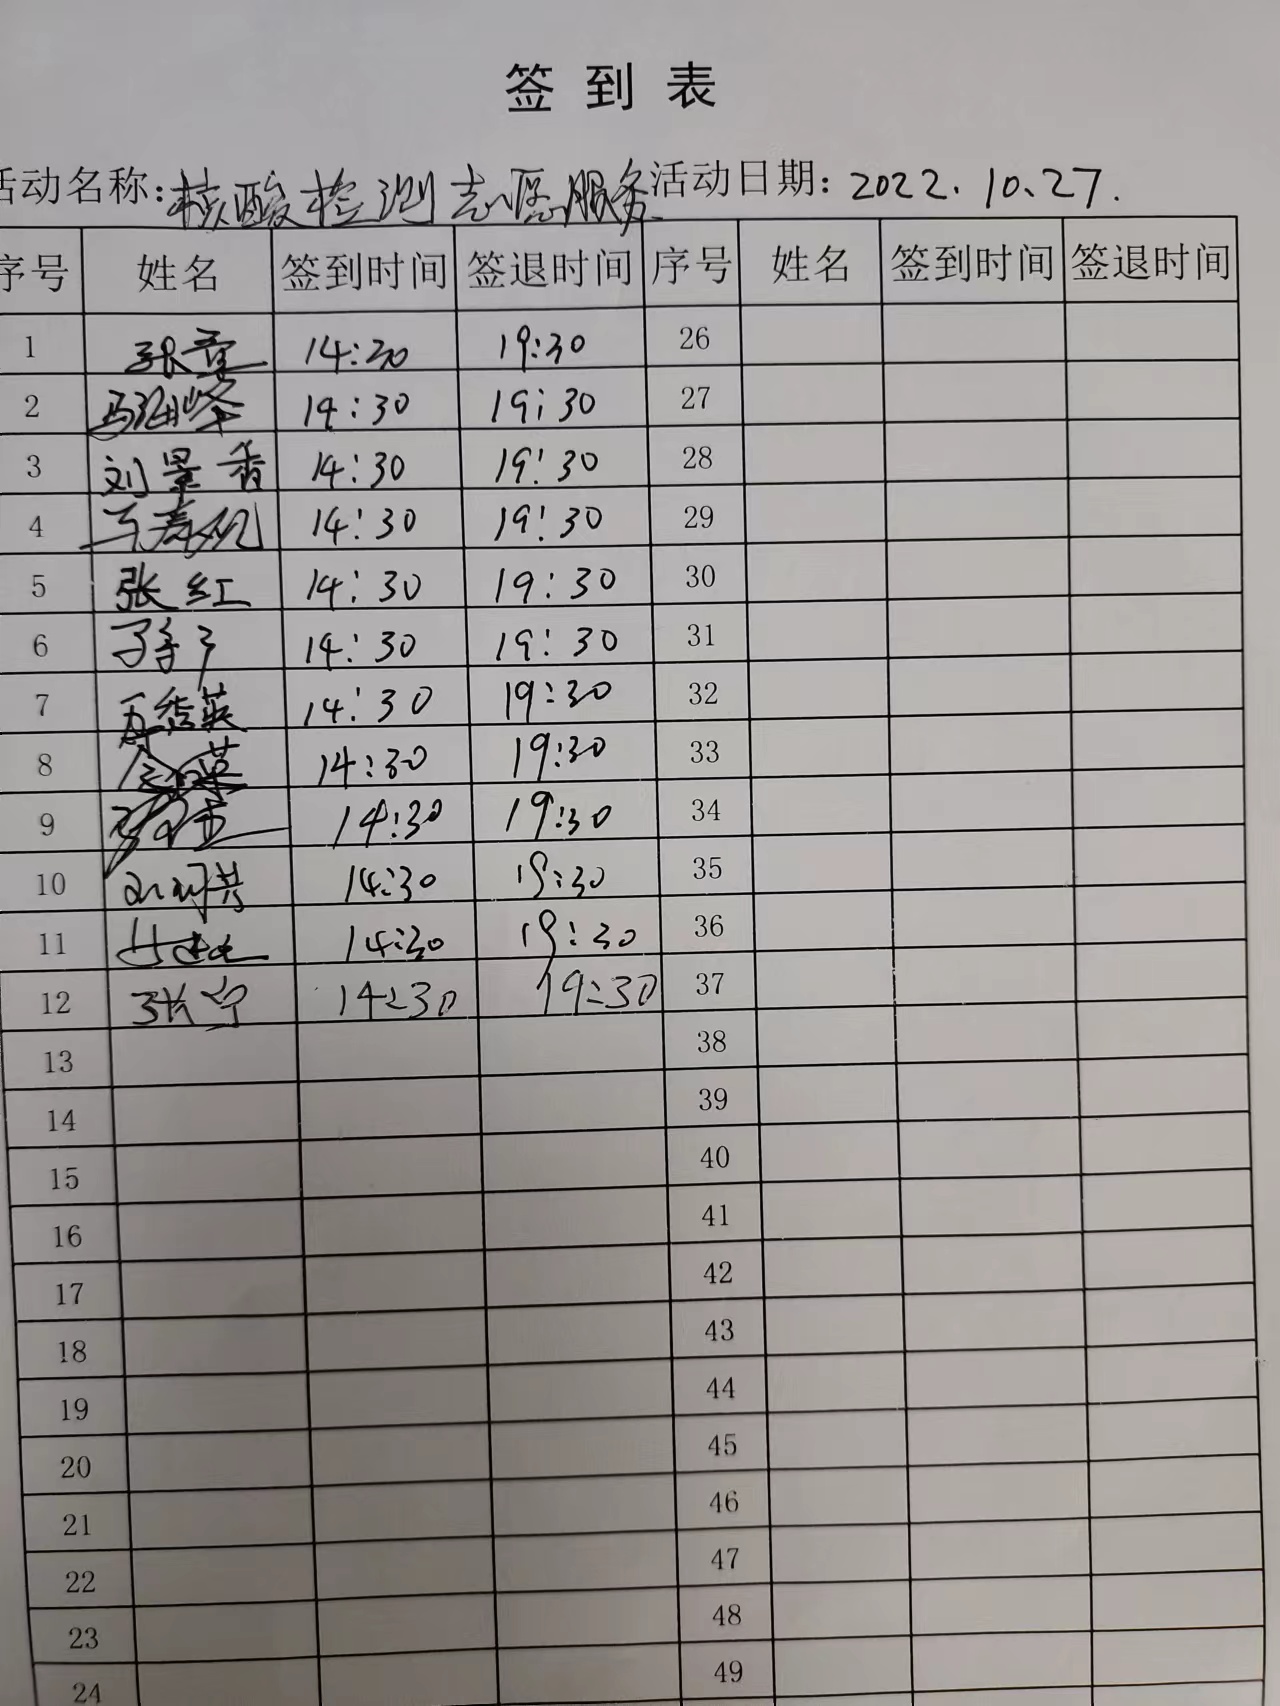 签到表
活动名称:核酸检测志愿服务 活动日期: 2022.10.27.
序号 姓名 签到时间 签退时间 序号 姓名 签到时间 签退时间
1 张童 14:30 19:30 26
2 14:30 19:30 27
3 刘景香 14:30 19:30 28
4 14:30 19:30 29
5 张红 14:30 19:30 30
6 14:30 19:30 31
7 14:30 19:30 32
8 14:30 19:30 33
9 14:30 19:30 34
10 14:30 19:30 35
11 14:30 19:30 36
12 张宁 14:30 19:30 37
13 38
14 39
15 40
16 41
17 42
18 43
19 44
20 45
21 46
22 47
23 48
24 49